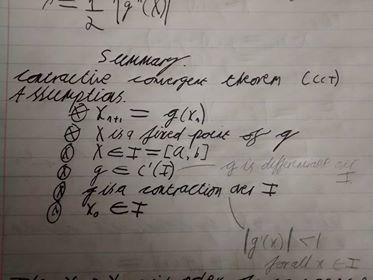 = 1/2 |g"(X)|
Summary.
contractive convergent theorem (CCT)
Assumptions.
Xn+1 = g(xn)
X is a fixed point of g
X ∈ I = [a, b]
g ∈ C'(I) g is differentiable over I
g is a contraction over I
x0 ∈ I
|g'(x)| < 1
for all x ∈ I